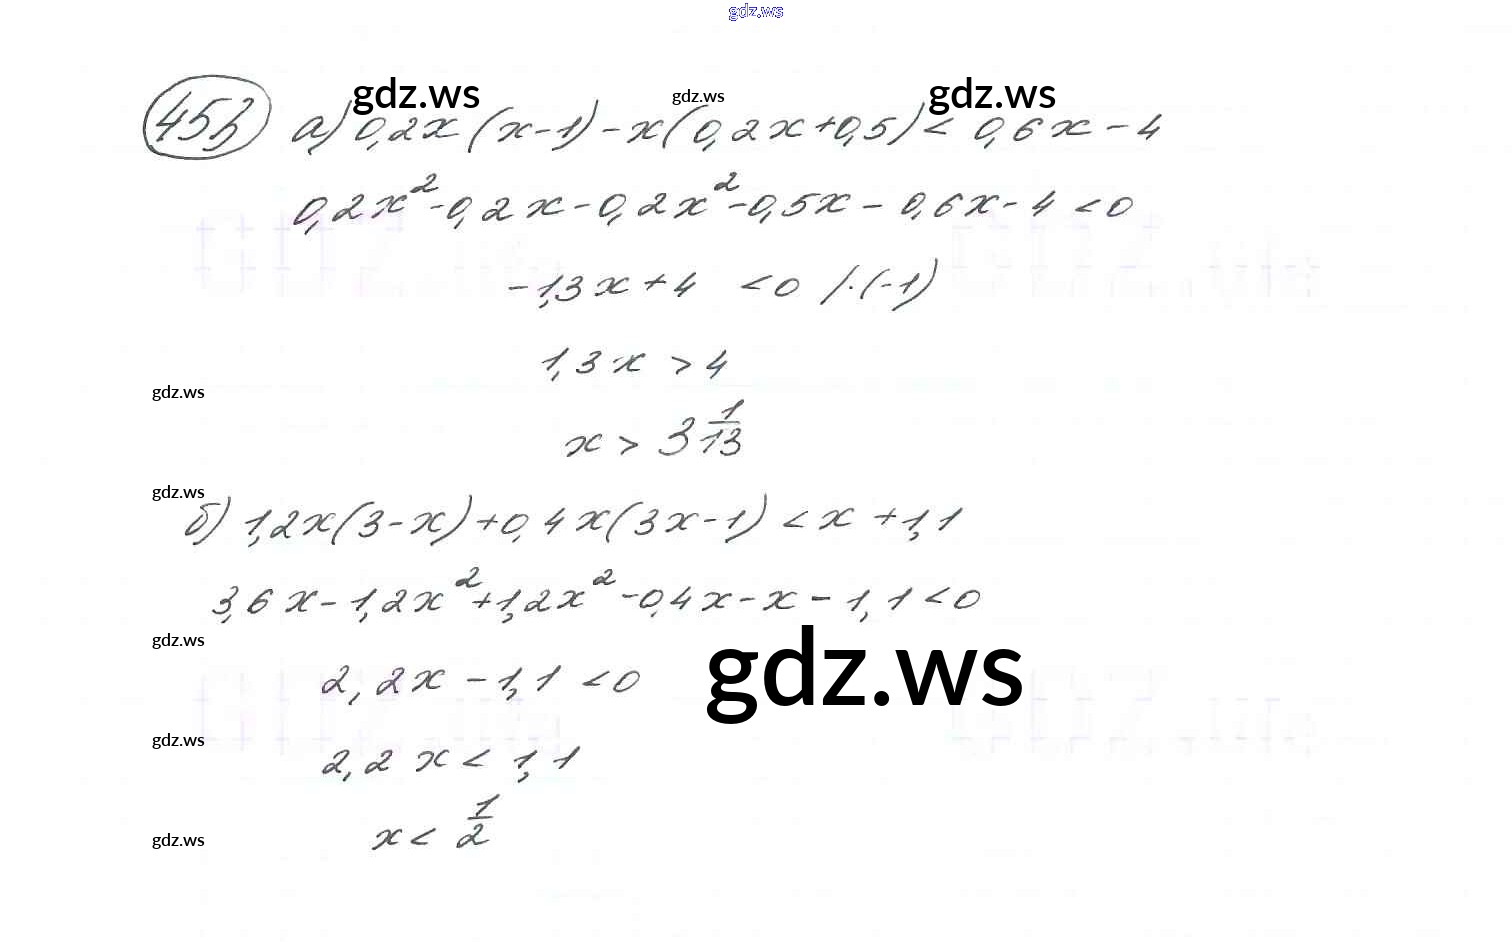 gdz.ws
gdz.ws gdz.ws gdz.ws
453 а) 0,2x (x-1) - x(0,2x+0,5) < 0,6x - 4
0,2x² - 0,2x - 0,2x² - 0,5x - 0,6x - 4 < 0
GDZ.life GDZ.life
-1,3x + 4 < 0 /·(-1)
1,3x > 4
gdz.ws
x > 3 1/13
gdz.ws
б) 1,2x(3-x) + 0,4x(3x-1) < x + 1,1
3,6x - 1,2x² + 1,2x² - 0,4x - x - 1,1 < 0
gdz.ws
gdz.ws
2,2x - 1,1 < 0
GDZ.life GDZ.life
gdz.ws
2,2x < 1,1
x < 1/2
gdz.ws